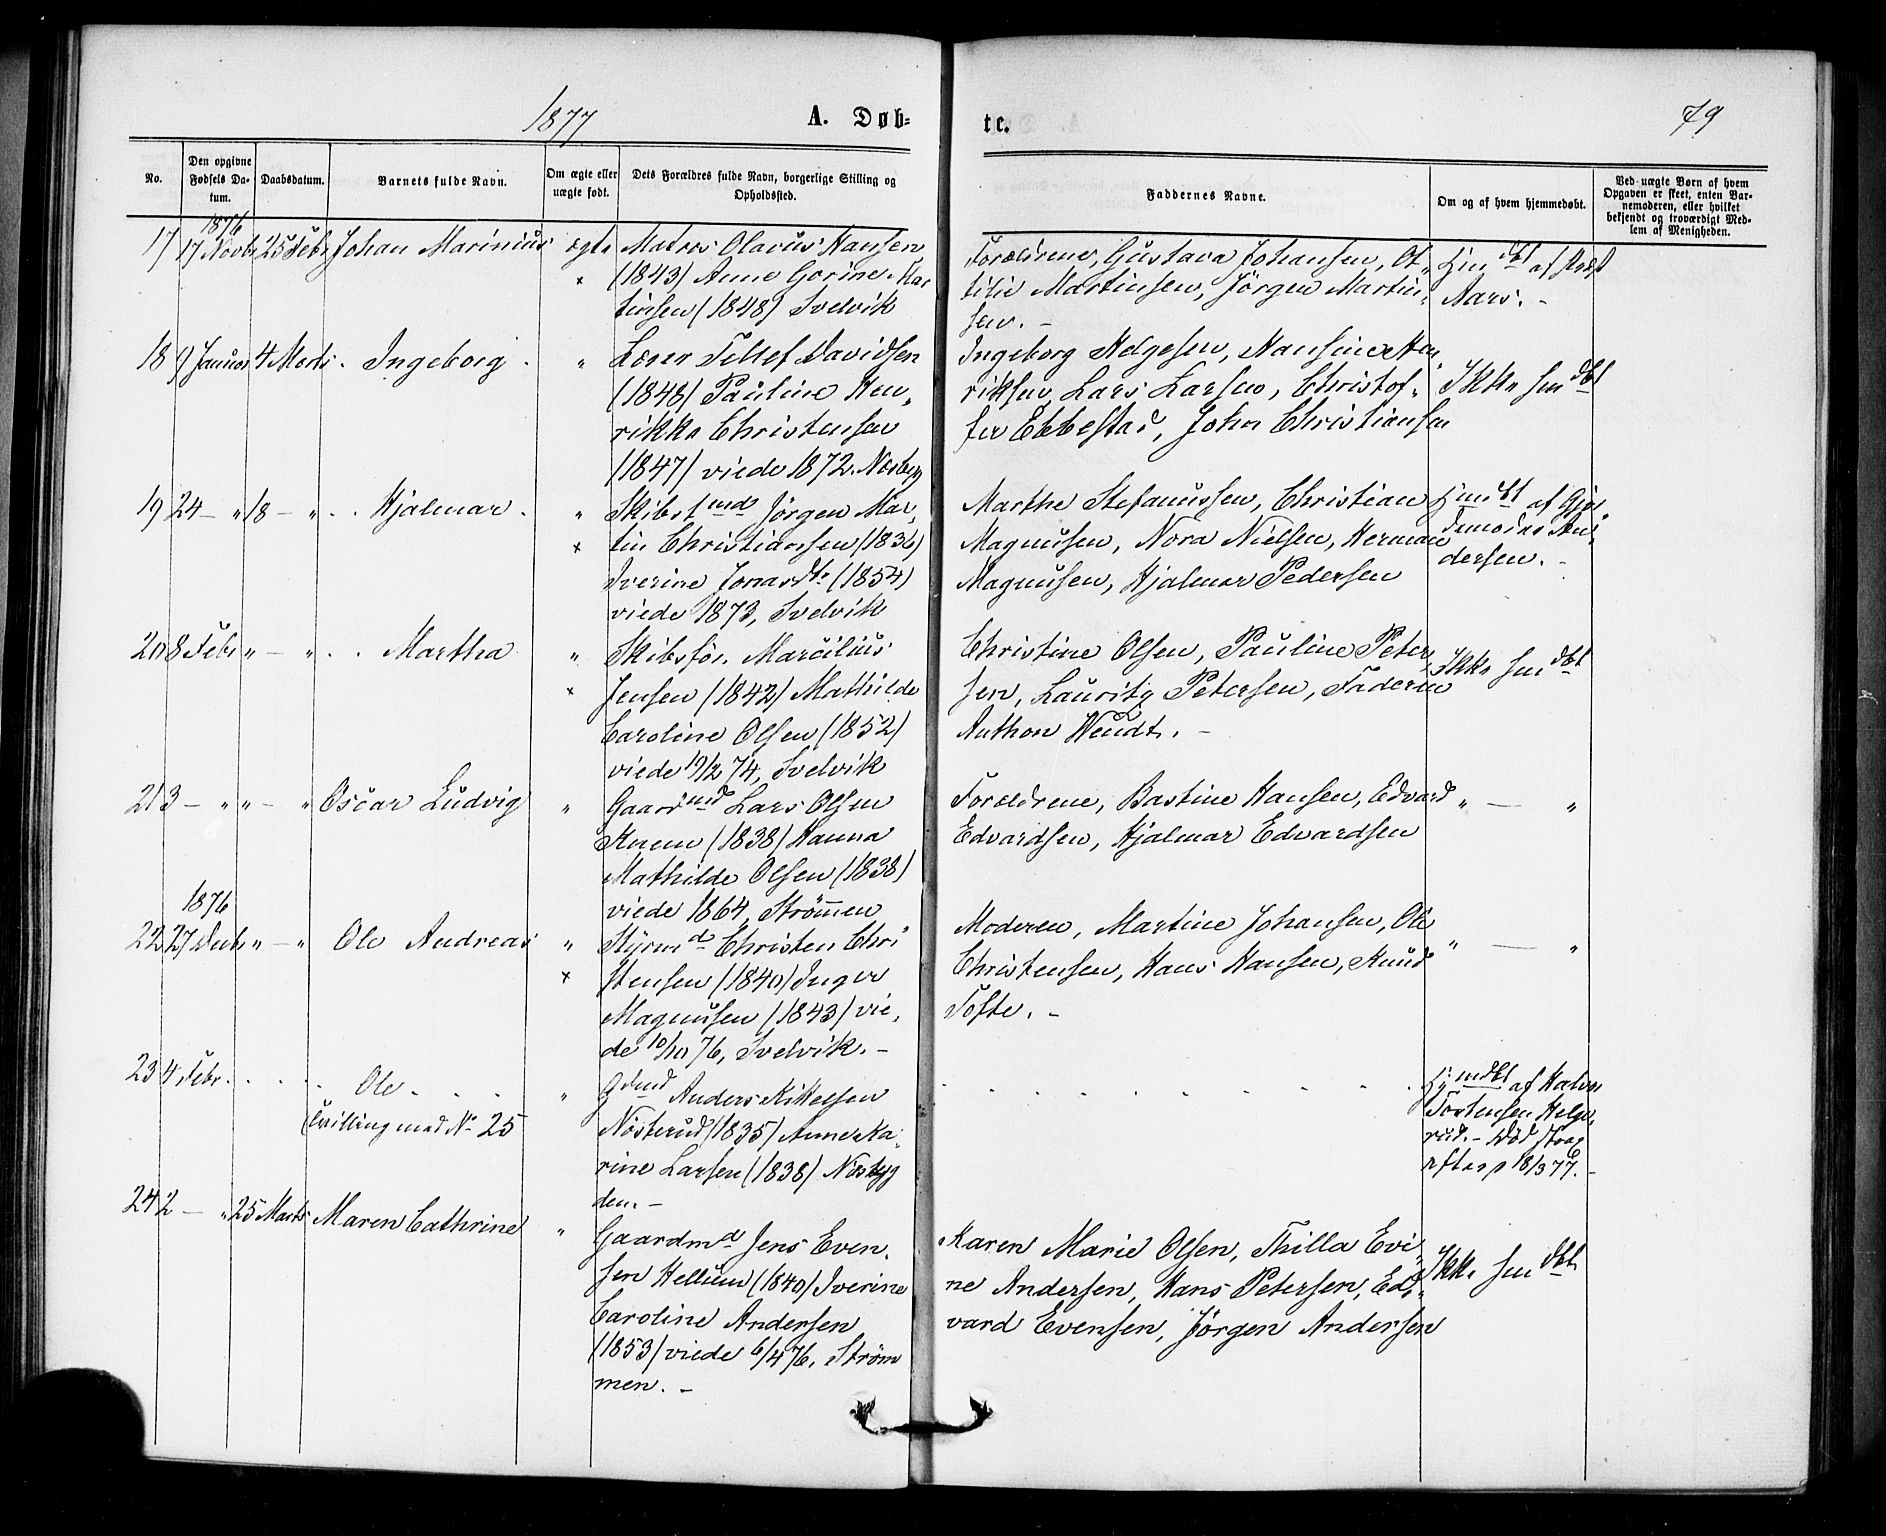 1877
A. Døb-
te.
79
No.
Den opgivne Fødsels Da-tum.
Daabsdatum.
Barnets fulde Navn.
Om ægte eller uægte født.
Dets Forældres fulde Navn, borgerlige Stilling og Opholdssted.
Faddernes Navne.
Om og af hvem hjemmedøbt.
Ved uægte Børn af hvem Opgaven er skeet, enten Bar-nemoderen, eller hvilket bekjendt og troværdigt Med-lem af Menigheden.
1876
17 17 Novbr 25 Febr Johan Marinius ægte Matros Olavus Hansen
× (1843) Anne Gorine Mar
tinsen (1848) Svelvik
Forældrene, Gustava Johansen, Ot
tilie Martinsen, Jörgen Martin
sen. –
Hjmdbt af Præst
Aars. –
18 9 Januar 4 Marts . Ingeborg . " Losen Tellef Davidsen
(1848) Pauline Hen
rikke Christensen
(1847) viede 1872. Nesbyg
Ingeborg Helgesen, Hansine Hen
riksen, Lars Larsen, Christof
fer Ebbestad, John Christiansen
Ikke hmdbt
19 24 – " 18 – " . . Hjalmar . " Skibstmd Jörgen Mar
× tin Christiansen (1836)
Iverine Jonasdtr (1854)
viede 1873, Svelvik
Marthe Stefanussen, Christian
Magnusen, Nora Nielsen, Herman
Magnusen, Hjalmar Pedersen
Hjmdbt af Gjor
demoder An
dersen. –
20 8 Febr " – " . . Martha " Skibsför. Marcilius
× Jensen (1842) Mathilde
Caroline Olsen (1852)
viede 19/2 74, Svelvik
Christine Olsen, Pauline Peter
sen, Lauritz Petersen, Faderen
Anthon Wendt. –
Ikke hmdbt
21 3 – " " – " Oscar Ludvig " Gaardmd Lars Olsen
Knem (1838) Hanna
Mathilde Olsen (1838)
viede 1864, Strömmen
Forældrene, Bastine Hansen, Edvard
Edvardsen, Hjalmar Edvardsen
" — "
1876
22 27 Decbr " – " Ole Andreas " Styrmd Christen Chri
× stensen (1840) Inger
Magnusen (1843) vie
de 10/10 76, Svelvik. –
Moderen, Martine Johansen, Ole
Christensen, Hans Hansen, Knud
Tofte. –
" — "
23 4 Febr. . . . . Ole . . . " Gdmd Anders Kittelsen
(Tvilling med No 25 Nösterud (1835) Anne Ka
rine Larsen (1838) Nesbyg
den. –
Hjmdbt af Halvor
Tostensen Helge
rud. – Död strax
efter p 18/3 77. –
24 2 – " 25 Marts Maren Cathrine " Gaardmd Jens Even
sen Hellum (1840) Iverine
Caroline Andersen
(1853) viede 6/4 76, Ström
men. –
Karen Marie Olsen, Thilla Evi
ne Andersen, Hans Petersen, Ed
vard Evensen, Jörgen Andersen
Ikke hmdbt